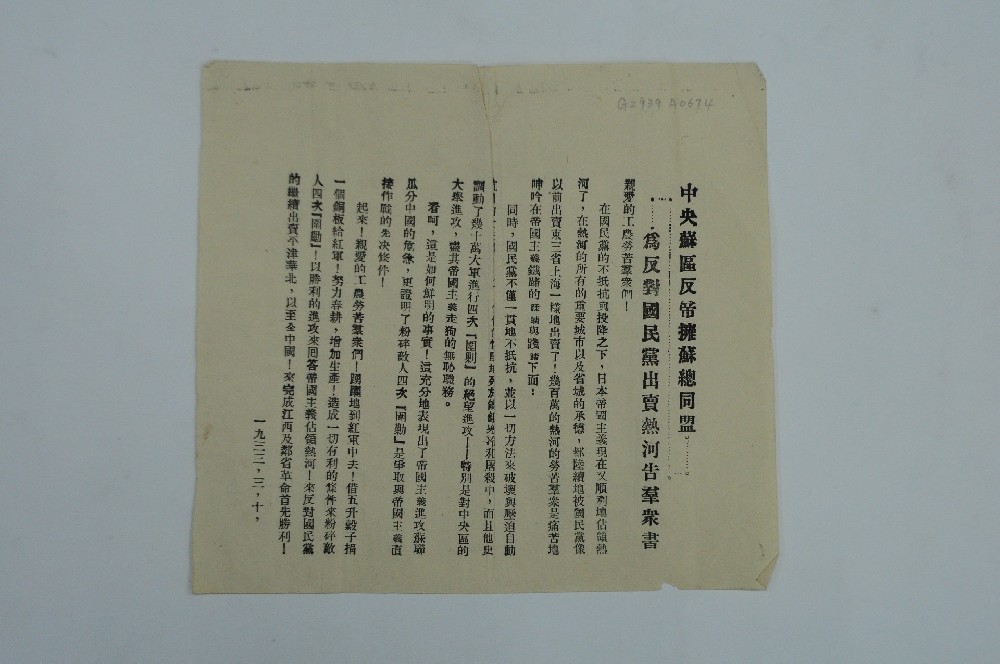 G2939 A0674
中央蘇區反帝擁蘇總同盟
爲反對國民黨出賣熱河告羣衆書
親愛的工農勞苦羣衆們！
在國民黨的不抵抗與投降之下，日本帝國主義現在又順利地佔領熱
河了，在熱河的所有的重要城市以及省城的承德，都陸續地被國民黨像
以前出賣東三省上海一樣地出賣了！幾百萬的熱河的勞苦羣衆是痛苦地
呻吟在帝國主義鐵蹄的蹂躪與踐踏下面！
同時，國民黨不僅一貫地不抵抗，並以一切方法來破壞與壓迫自動
屠殺中，而且他更
調動了幾十萬大軍進行四次『圍剿』的絕望進攻——特別是對中央區的
大舉進攻，盡其帝國主義走狗的無恥職務。
看呵，這是如何鮮明的事實！這充分地表現出了帝國主義進攻蘇聯
瓜分中國的危急，更證明了粉碎敵人四次『圍剿』是爭取與帝國主義直
接作戰的先決條件！
起來！親愛的工農勞苦羣衆們！踴躍地到紅軍中去！借五升穀子捐
一個銅板給紅軍！努力春耕，增加生產！造成一切有利的條件來粉碎敵
人四次『圍剿』！以勝利的進攻來回答帝國主義佔領熱河！來反對國民黨
的繼續出賣平津華北，以至全中國！來完成江西及鄰省革命首先勝利！
一九三三，三，十，